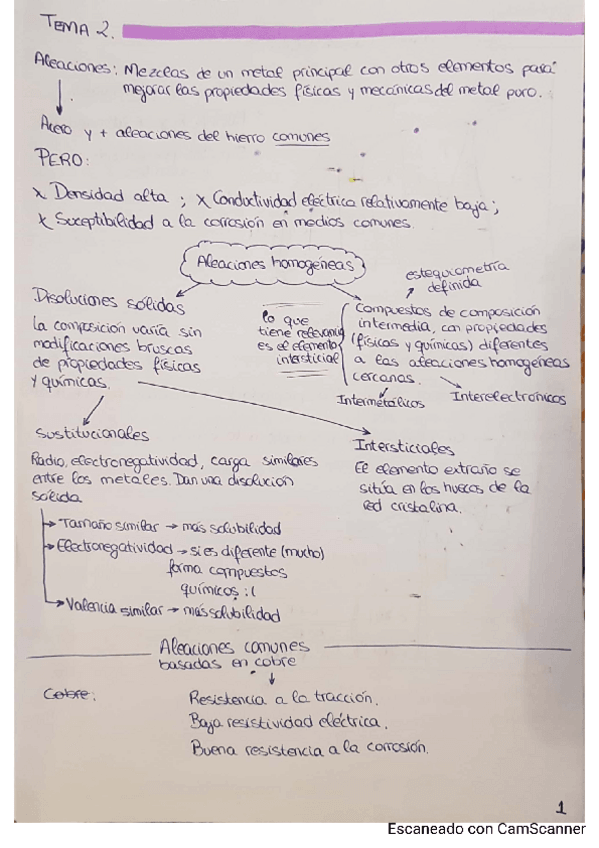 TEMA 2.
Aleaciones: Mezclas de un metal principal con otros elementos para
mejorar las propiedades físicas y mecánicas del metal puro.
Acero y + aleaciones del hierro comunes
PERO:
x Densidad alta ; x Conductividad eléctrica relativamente baja;
x Suceptibilidad a la corrosión en medios comunes.
Aleaciones homogéneas
estequiometría
definida
Disoluciones sólidas
La composición varía sin
modificaciones bruscas
de propiedades físicas
y químicas.
lo que
tiene relevancia
es el elemento
intersticial
Compuestos de composición
intermedia, con propiedades
(físicas y químicas) diferentes
a las aleaciones homogéneas
cercanas.
Intermetálicos
Interelectrónicos
Sustitucionales
Radio, electronegatividad, carga similares
entre los metales. Dan una disolución
sólida
Intersticiales
El elemento extraño se
sitúa en los huecos de la
red cristalina.
→ Tamaño similar → más solubilidad
→ Electronegatividad → si es diferente (mucho)
forma compuestos
químicos :(
→ Valencia similar → más solubilidad
Aleaciones comunes
basadas en cobre
Cobre:
Resistencia a la tracción.
Baja resistividad eléctrica.
Buena resistencia a la corrosión.
1
Escaneado con CamScanner